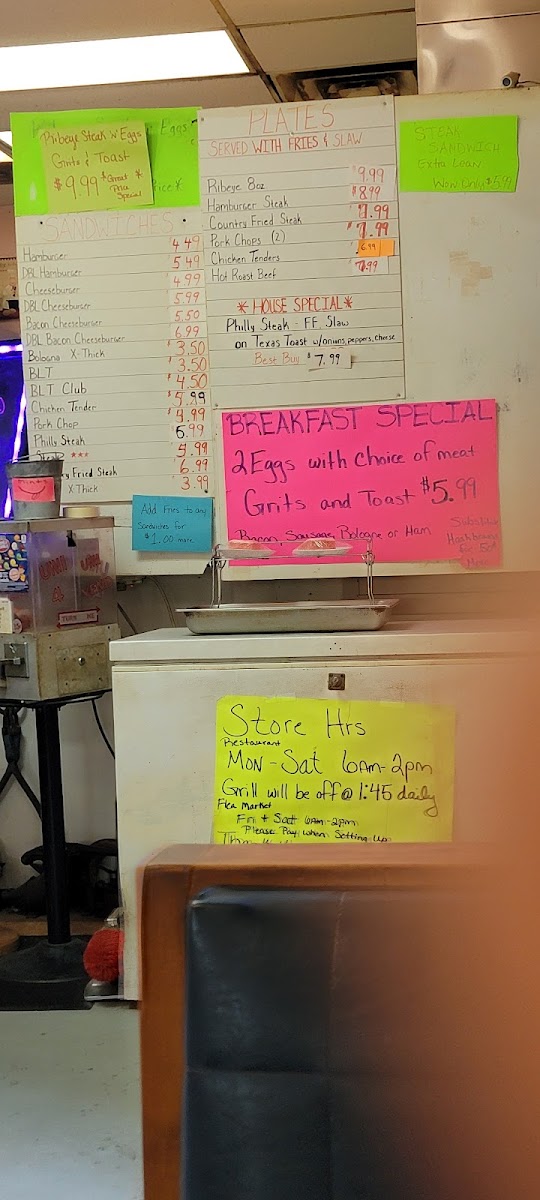 Ribeye Steak w Eggs
Grits & Toast
$9.99 *Great Price Special
Eggs
SANDWICHES
Hamburger 4.49
DBL Hamburger 5.49
Cheeseburger 4.99
DBL Cheeseburger 5.99
Bacon Cheeseburger 5.50
DBL Bacon Cheeseburger 6.99
Bologna X-Thick $3.50
BLT $3.50
BLT Club $4.50
Chicken Tender $5.99
Pork Chop
Philly Steak 6.99
Steak *** 5.99
Fried Steak 6.99
X-Thick 3.99
Add Fries to any
Sandwiches for
$1.00 more
PLATES
SERVED WITH FRIES & SLAW
Ribeye 8oz 9.99
Hamburger Steak $8.99
Country Fried Steak
Pork Chops (2)
Chicken Tenders 6.99
Hot Roast Beef 7.99
* HOUSE SPECIAL *
Philly Steak - FF Slaw
on Texas Toast w/onions, peppers, cheese
Best Buy $7.99
STEAK
SANDWICH
Extra Lean
Wow Only $5.99
BREAKFAST SPECIAL
2 Eggs with Choice of meat
Grits and Toast $5.99
Bacon, Sausage, Bologna or Ham
Substitute
Hashbrowns
for 50¢
More
TURN ME
Store Hrs
Restaurant
MON-Sat 6Am-2pm
Grill will be off @ 1:45 daily
Flea Market
Fri & Sat 6Am-2pm
Please Pay when Setting Up